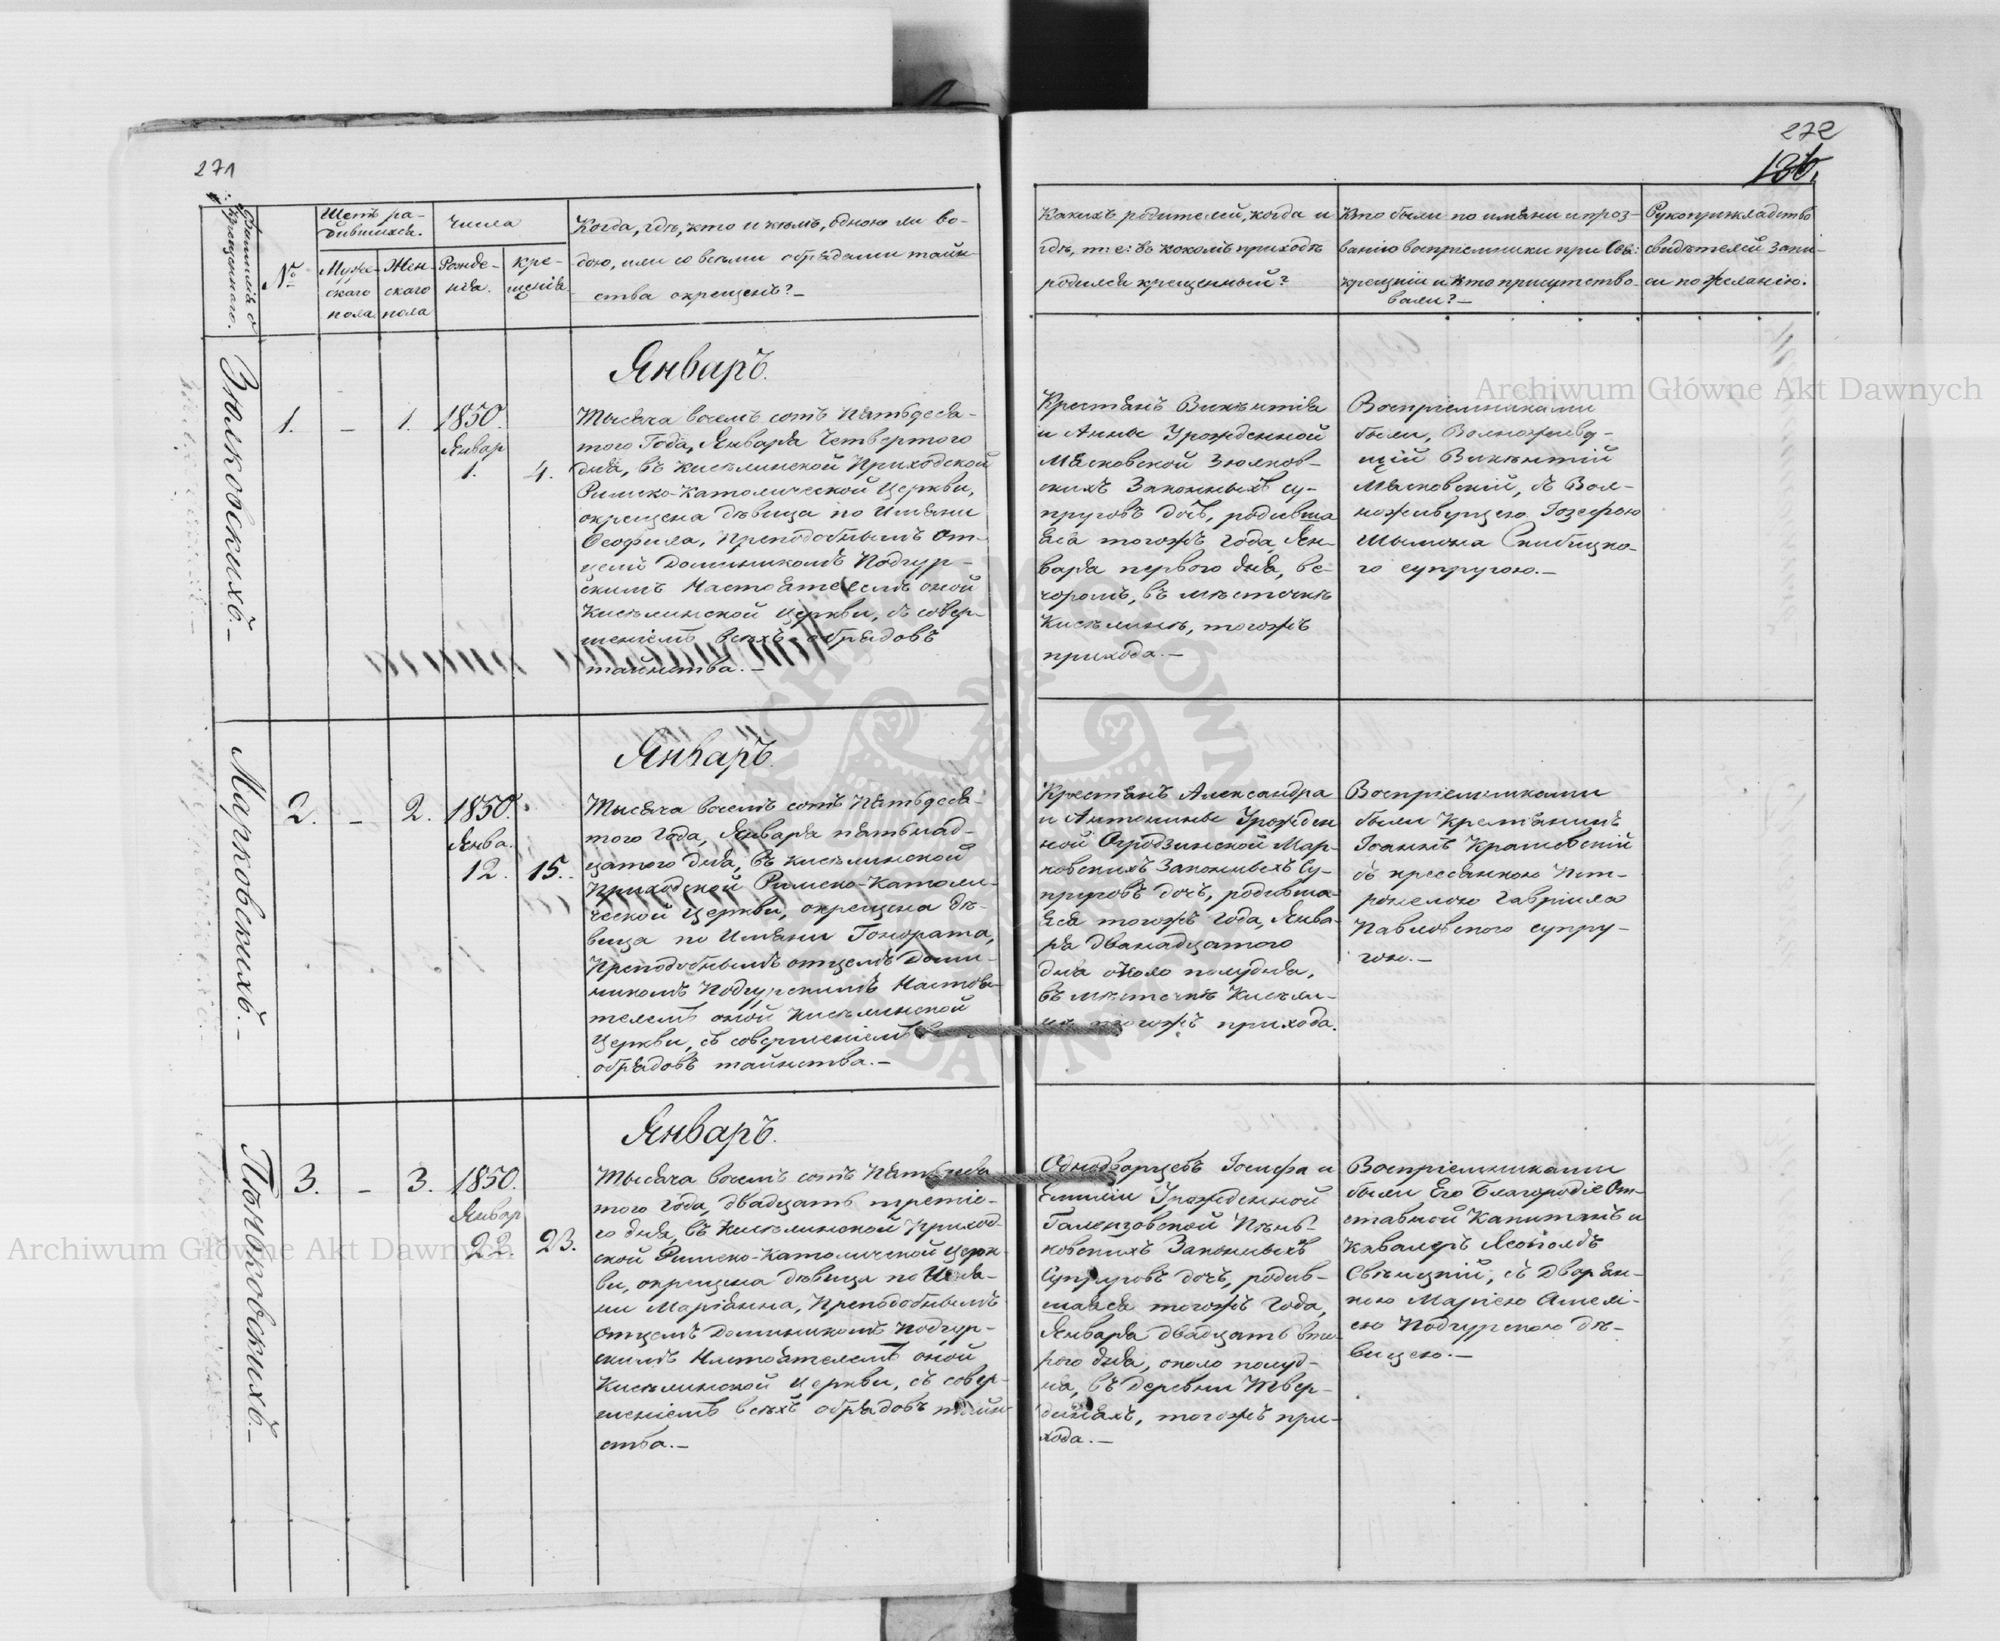 271
272
136.
Фамилія о
крещонного.
№
Щетъ ра-
дившихся.
Муже-
скаго
пола
Жен-
скаго
пола
Числа
Рожде-
нія.
кре-
щенія
Когда, гдѣ, кто и кѣмъ, одною ли во-
дою, или со всѣми обрядами таин-
ства окрещенъ?—
Какихъ родителей, когда и
гдѣ, т: е: въ какомъ приходѣ
родился крещенный?
Кто были по имѣни и проз-
ванію воспріемники при Свя:
крещніи и кто присутство-
вали?—
Рукоприкладство
свидѣтелей запи-
си по желанію.
Зюлковскихъ.—
1.
—
1.
1850.
Январ
1.
4.
Январъ.
Тысяча восемъ сотъ Пятьдеся-
того Года, Января Четвертого
дня, въ Киселинской Приходской
Римско-Католической Церкви,
окрещена дѣвица по Имяни
Ѳеофила, Преподобнымъ От-
цемъ Доминикомъ Подгур-
скимъ Настоятелемъ оной
Киселинской Церкви, съ совер-
шеніемъ всѣхъ обрядовъ
таинства.—
Крестянъ Викентія
и Анны Урожденной
Мясковской Зюлков-
скихъ Законныхъ су-
пруговъ дочь, родивша
яся тогожъ Года, Ян-
варя первого дня, ве-
чоромъ, въ мѣстечкѣ
Киселинѣ, тогожъ
прихода.—
Воспріемниками
были, Вольноживу-
щій Викентій
Мясковскій, съ Вол-
ноживущею Іозефою
Шымона Скибицко-
го супругою.—
Марковскихъ.—
2.
—
2.
1850.
Янва.
12.
15.
Январъ.
Тысяча восемъ сотъ Пятьдеся-
того Года, Января пятьнад-
цатого дня, въ Киселинской
Приходской Римско-Католи-
ческой Церкви, окрещена дѣ-
вица по Имяни Гонората,
Преподобнымъ отцемъ Доми-
никомъ Подгурскимъ Настоя-
телемъ оной Киселинской
Церкви, съ совершеніемъ
обрядовъ таинства.—
Крестянъ Александра
и Антонины Урожден
ной Огродзинской Мар-
ковскихъ Законныхъ Су-
пруговъ дочь, родивша-
яся тогожъ Года, Янва-
ря дванадцатого
дня около полудня,
въ мѣстечкѣ Кисели-
нѣ тогожъ прихода.
Воспріемниками
были Крестянинъ
Іоаннъ Крашевскій
съ крестянкою Пет-
ронелею Гавріила
Павловского супру-
гою.—
Пѣньковскихъ.—
3.
—
3.
1850.
Январ
22.
23.
Январъ.
Тысяча восемъ сотъ Пятьдеся
того Года, двадцать третіо-
го дня, въ Киселинской Приход-
ской Римско-Католической Церк-
ви, окрещена дѣвица по Имя-
ни Маріянна, Преподобнымъ
Отцемъ Доминикомъ Подгур-
скимъ Настоятелемъ оной
Киселинской Церкви, съ совер-
шеніемъ всѣхъ обрядовъ таин
ства.—
Однодворцевъ Іосифа и
Емиліи Урожденной
Галензовской Пѣнь-
ковскихъ Законныхъ
Супруговъ дочь, родив-
шаяся тогожъ Года,
Января двадцать вто-
рого дня, около полуд-
ня, въ деревни Твер-
динахъ, тогожъ при-
хода.—
Воспріемниками
были Его Благородіе От-
ставной Капитанъ и
Кавалеръ Леопольдъ
Свѣнцкій, съ Дворян-
кою Маріею Амелі-
ею Подгурскою дѣ-
вицею.—
Archiwum Główne Akt Dawnych
Archiwum Główne Akt Dawnych